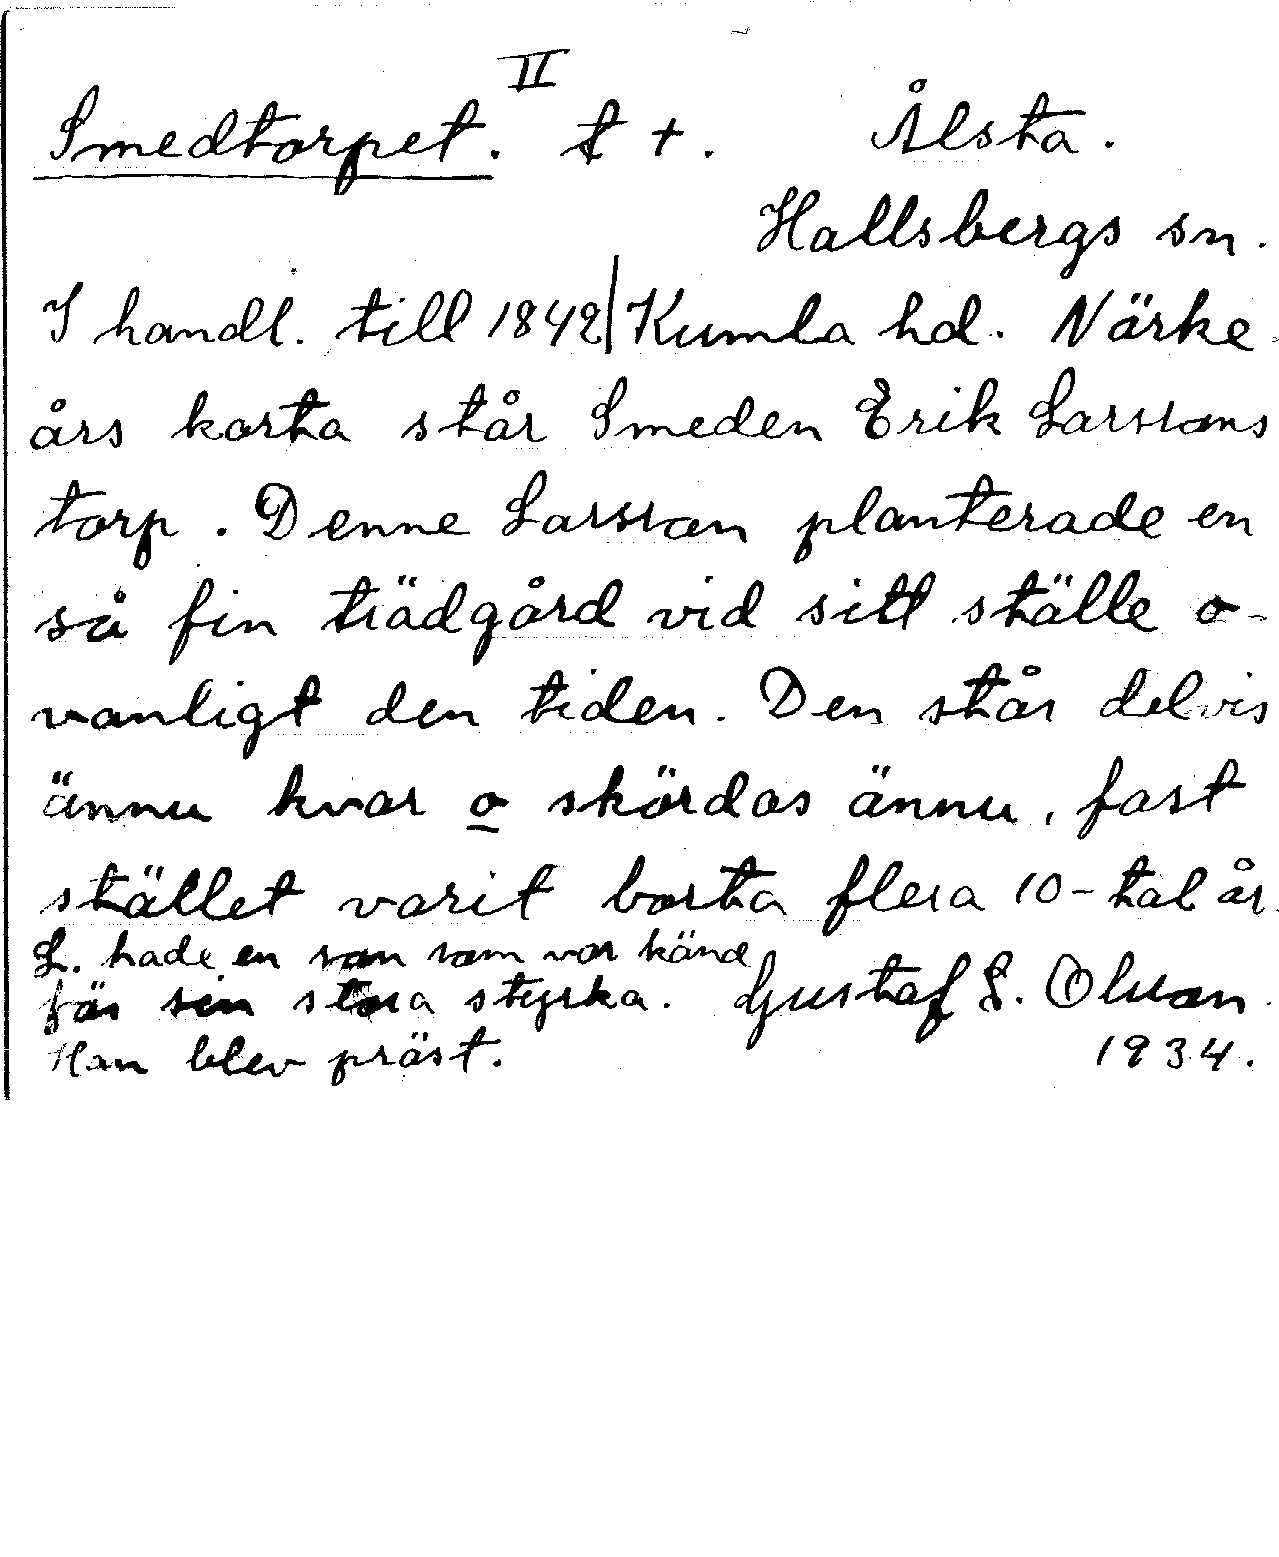 II
Smedtorpet. t +. Ålsta.
Hallsbergs sn.
I handl. till 1842 | Kumla hd. Närke.
års karta står Smeden Erik Larssons
torp. Denne Larsson planterade en
så fin trädgård vid sitt ställe o-
vanligt den tiden. Den står delvis
ännu kvar o skördas ännu, fast
stället varit borta flera 10-tal år.
L. hade en son som var känd
för sin stora styrka. Gustaf E. Olsson.
Han blev präst. 1934.